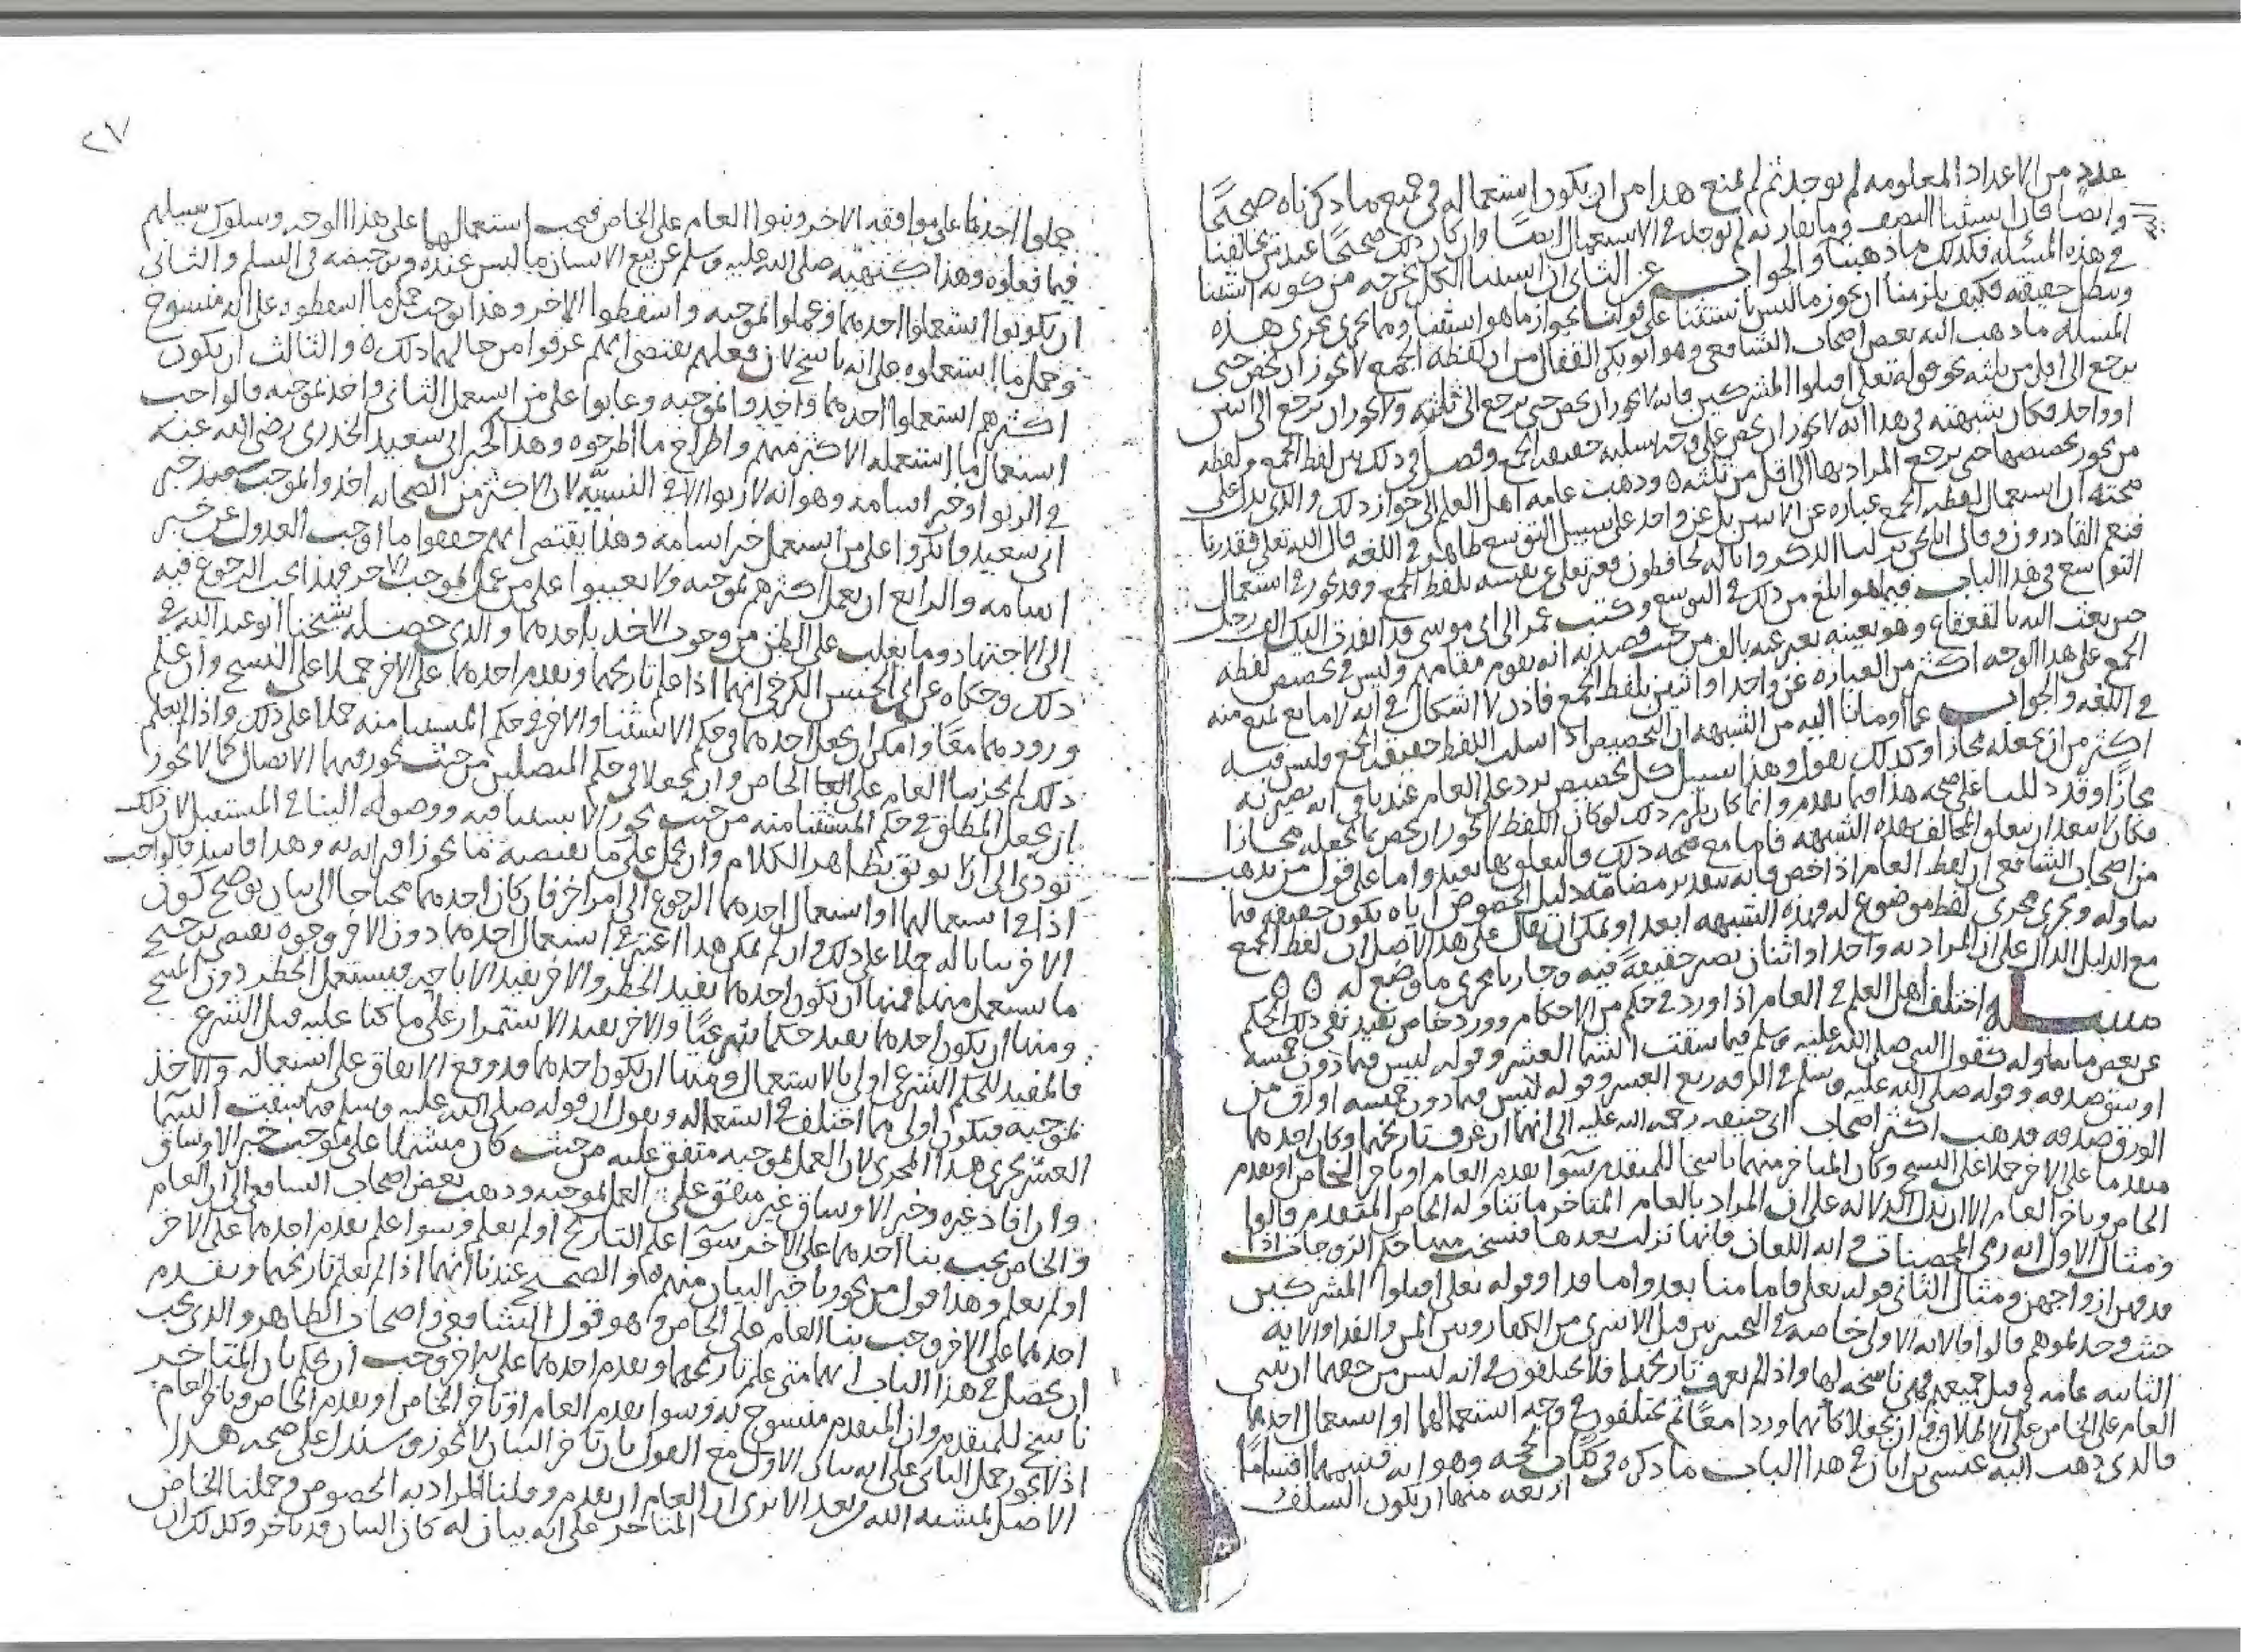 عدد من الاعداد المعلومه لم يوجد ثم لم يمنع هذا من ان يكون استعماله في جميع ما ذكرناه صحيحًا
وايضا فان استثنا النصف وما يقاربه لم يوجد في الاستعمال ايضًا وان كان ذلك صحيحًا عند من يخالفنا
في هذه المسئله فكذلك ما ذهبنا والجواب عن الثاني ان استثنا الكل يخرجه من كونه استثنا
ويبطل حقيقته فكيف يلزمنا ان نجوز ما ليس باستثنا على قولنا بجواز ما هو استثنا ومما يجري مجرى هذه
المسئله ما ذهب اليه بعض اصحاب الشافعي وهو ابو بكر القفال من ان لفظه الجمع لا يجوز ان يخص حتى
يرجع الى اقل من ثلثه نحو قوله تعلى اقتلوا المشركين فانه لا يجوز ان يخص حتى يرجع الى ثلثه ولا يجوز ان يرجع الى اثنين
او واحد فكان شبهته في هذا انه لا يجوز ان يخص على وجه يسلبه حقيقه الجمع وفصل في ذلك بين لفظ الجمع ولفظه
من يجوز تخصيصها حتى يرجع المراد بها الى اقل من ثلثه ٥ وذهب عامه اهل العلم الى جواز ذلك والذي يدل على
صحته ان استعمال لفظه الجمع عباره عن الاثنين بل عن واحد على سبيل التوسع ظاهر في اللغه قال الله تعلى فقدرنا
فنعم القادرون وقال انا نحن نزلنا الذكر وانا له لحافظون فعبر تعلى عن نفسه بلفظ الجمع وقد تجوز في استعمال
التواسع في هذا الباب فيما هو ابلغ من ذلك في التوسع وكتب عمر الى ابي موسى قد انفذت اليك الف رجل
حين بعث اليه بالقعقاع وهو بعينه يعبر عنه بالف من حيث قصد به انه يقوم مقامهم وليس في تخصيص لفظه
الجمع على هذا الوجه اكثر من العباره عن واحد او اثنين بلفظ الجمع فاذن لا اشكال في انه لا مانع يمنع منه
في اللغه والجواب عما اومانا اليه من الشبهه ان التخصيص اذا سلب اللفظ حقيقه الجمع وليس فيه
اكثر من ان يجعله مجازا وكذلك نقول وهذا سبيل كل تخصيص يرد على العام عندنا في انه يصير به
مجازًا وقد دللنا على صحه هذا فيما تقدم وانما كان يلزم ذلك لو كان اللفظ لا يجوز ان يخص بما يجعله مجازا
فكان لا يبعد ان يتعلق المخالف بهذه الشبهه فاما مع صحه ذلك فالتعلق بها بعيد واما على قول من يذهب
من اصحاب الشافعي ان لفظ العام اذا خص فانه بتقدير مضامه دليل الخصوص اياه يكون حقيقه فيما
تناوله ويجري مجرى لفظ موضوع له فهذه الشبهه ابعد او يمكن ان يقال على هذا الاصل ان لفظ الجمع
مع الدليل الدال على ان المراد به واحد او اثنان يصير حقيقةً فيه وجاريا مجرى ما وضع له ٥ ٥
مسـله اختلف اهل العلم في العام اذا ورد في حكم من الاحكام وورد خاص يفيد نفي ذلك الحكم
عن بعض ما تناوله كقول النبي صلى الله عليه وسلم فيما سقت السما العشر وقوله ليس فيما دون خمسه
اوسق صدقه وقوله صلى الله عليه وسلم في الرقه ربع العشر وقوله ليس فيما دون خمسه اواق من
الورق صدقه فذهب اكثر اصحاب ابي حنيفه رحمه الله عليه الى انهما ان عرف تاريخهما وكان احدهما
متقدما على الاخر حملا على النسخ وكان المتاخر منهما ناسخا للمتقدم سوا تقدم العام او تاخر الخاص او تقدم
الخاص وتاخر العام الا ان تدل الدلاله على ان المراد بالعام المتاخر ما تناوله الخاص المتقدم قالوا
ومثال الاول ايه رمي المحصنات في ايه اللعان فانها نزلت بعدها فنسخت منها حكم الزوجات اذا
قذفهن ازواجهن ومثال الثاني قوله تعلى فاما منا بعد واما فدا وقوله تعلى اقتلوا المشركين
حيث وجدتموهم قالوا فالايه الاولى خاصه في التخيير بين قبل الاسرى من الكفار وبين المن والفدا والايه
الثانيه عامه في قتل جميعهم فهي ناسخه لها واذا لم يعرف تاريخهما فلا يختلفون في انه ليس من حقهما ان يبنى
العام على الخاص على الاطلاق وفي ان يجعلا كانهما وردا معًا ثم يختلفون في وجه استعمالهما او استعمال احدهما
فالذي ذهب اليه عيسى بن ابان في هذا الباب ما ذكره في كتاب الحجه وهو انه قسمهما اقسامًا
اربعه منها ان يكون السلف
٢٧
حملوا احدهما على موافقه الاخر وبنوا العام على الخاص فيجب استعمالهما على هذا الوجه وسلوك سبيلهم
فيما فعلوه وهذا كنهيه صلى الله عليه وسلم عن بيع الانسان ما ليس عنده وترخيصه في السلم والثاني
ان يكونوا استعملوا احدهما وعملوا بموجبه واسقطوا الاخر وهذا يوجب حمل ما اسقطوه على انه منسوخ
وحمل ما استعملوه على انه ناسخ لان فعلهم يقتضي انهم عرفوا من حالهما ذلك ٥ والثالث ان يكون
اكثرهم استعملوا احدهما واخذوا بموجبه وعابوا على من استعمل الثاني واخذ بموجبه قالوا حب
استعمال ما استعمله الاكثر منهم واطراح ما اطرحوه وهذا كخبر ابي سعيد الخدري رضي الله عنه
في الربوا وخبر اسامه وهو انه لا ربوا الا في النسيّه لان الاكثر من الصحابه اخذوا بموجب خبر
ابي سعيد وانكروا على من استعمل خبر اسامه وهذا يقتضي انهم حققوا ما اوجب العدول عن خبر
اسامه والرابع ان يعمل اكثرهم بموجبه ولا يعيبوا على من عمل بموجب الاخر فهذا يجب الرجوع فيه
الى الاجتهاد وما يغلب على الظن من وجوب الاخذ باحدهما والذي حصله شيخنا ابو عبد الله في
ذلك وحكاه عن ابي الحسن الكرخي انهما اذا علم تاريخهما وتقدم احدهما على الاخر حملا على النسخ وان علم
ورودهما معًا وامكن ان يجعل احدهما في حكم الاستثنا والاخر في حكم المستثنا منه حملا على ذلك واذا لم يعلم
ذلك لم يجز بنا العام على الخاص وان يجعلا في حكم المتصلين من حيث يجوز فيهما الاتصال كما لا يجوز
ان يجعل المطلق في حكم المستثنا منه من حيث يجوز الاستثنا فيه ووصوله الينا في المستقبل لان ذلك
يودي الى ان لا يوثق بظاهر الكلام وان يحمل على ما يقتضيه ما يجوز اقترانه به وهذا فاسد قالواجب
اذا في استعمالهما او استعمال احدهما الرجوع الى امر اخر فان كان احدهما محتاجا الى بيان يوضح كون
الاخر بيانا له حملا على ذلك وان لم يمكن هذا اعتبر في استعمال احدهما دون الاخر وجوه يقتضي ترجيح
ما يستعمل منهما فمنها ان يكون احدهما يفيد الحظر والاخر يفيد الاباحه فيستعمل الحظر دون المبيح
ومنها ان يكون احدهما يفيد حكما شرعيًا والاخر يفيد الاستمرار على ما كنا عليه قبل الشرع
فالمفيد للحكم الشرعي اولى بالاستعمال ومنها ان يكون احدهما قد وقع الاتفاق على استعماله والاخذ
بموجبه فيكون اولى مما اختلف في استعماله ويقول ان قوله صلى الله عليه وسلم فيما سقت السما
العشر يجري هذا المجرى لان العمل بموجبه متفق عليه من حيث كان مشتملا على موجب خبر الاوساق
وان افاد غيره وخبر الاوساق غير متفق على العمل بموجبه وذهب بعض اصحاب الشافعي الى ان العام
والخاص يجب بنا احدهما على الاخر سوآ علم التاريخ او لم يعلم وسوا علم تقدم احدهما على الاخر
او لم يعلم وهذا قول من يجوز تاخير البيان منهم ٥ والصحيح عندنا انهما اذا لم يعلم تاريخهما وتقدم
احدهما على الاخر وجب بنا العام على الخاص وهو قول الشافعي واصحاب الظاهر والذي يجب
ان يحصل في هذا الباب انهما متى علم تاريخهما وتقدم احدهما على الاخر وجب ان يحكم بان المتاخر
ناسخ للمتقدم وان المتقدم منسوخ به وسوا تقدم العام او تاخر الخاص او تقدم الخاص وتاخر العام
اذ لا يجوز حمل الثاني على انه بيان الاول مع القول بان تاخر البيان لا يجوز وسندل على صحه هذا
الاصل بمشيه الله وبعد الا ترى ان العام ان تقدم وقلنا المراد به الخصوص وحملنا الخاص
المتاخر على انه بيان له كان البيان قد تاخر وكذلك ان